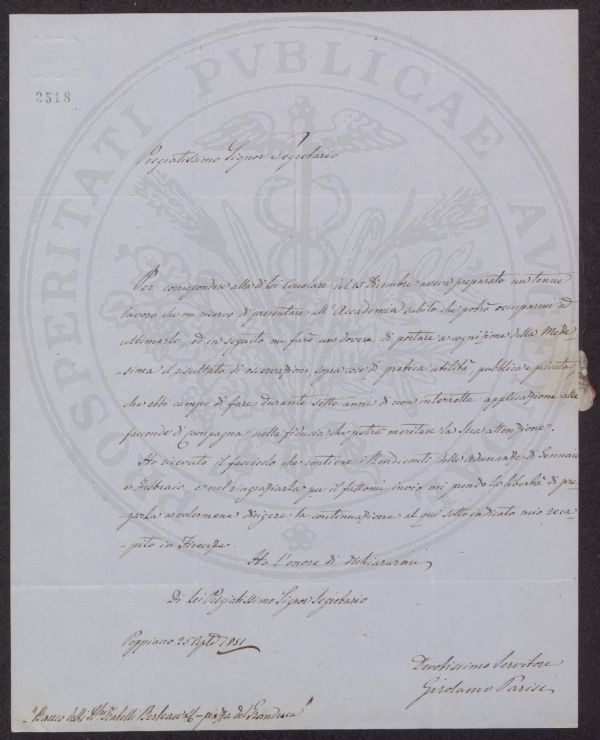 2518
PROSPERITATI PVBLICAE AV
Pregiatissimo Signor Segretario
Per corrispondere alla di lei Circolare del 15 Dicembre aveva preparato un tenue
lavoro che mi riservo di presentare all'Accademia subito che potrò occuparmi ad
ultimarlo, ed in seguito mi farò un dovere di portare a cognizione della Mede-
sima il risultato di osservazioni sopra cose di pratica utilità pubblica e privata
che ebbi campo di fare durante sette anni di non interrotta applicazione alle
faccende di campagna nella fiducia che potrà meritare la Sua attenzione.
Ho ricevuto il fascicolo che contiene i Rendiconti delle adunanze di Gennaio
e Febbraio, e nel ringraziarla per il fattomi invio mi prendo la libertà di pre-
garla a volermene dirigere la continuazione al qui sotto indicato mio reca-
pito in Firenze
Ho l'onore di dichiararmi
Di Lei Pregiatissimo Signor Segretario
Poppiano 25 1851
Devotissimo Servitore
Girolamo Parisi
"Banco delli Fratelli piazza del Granduca"